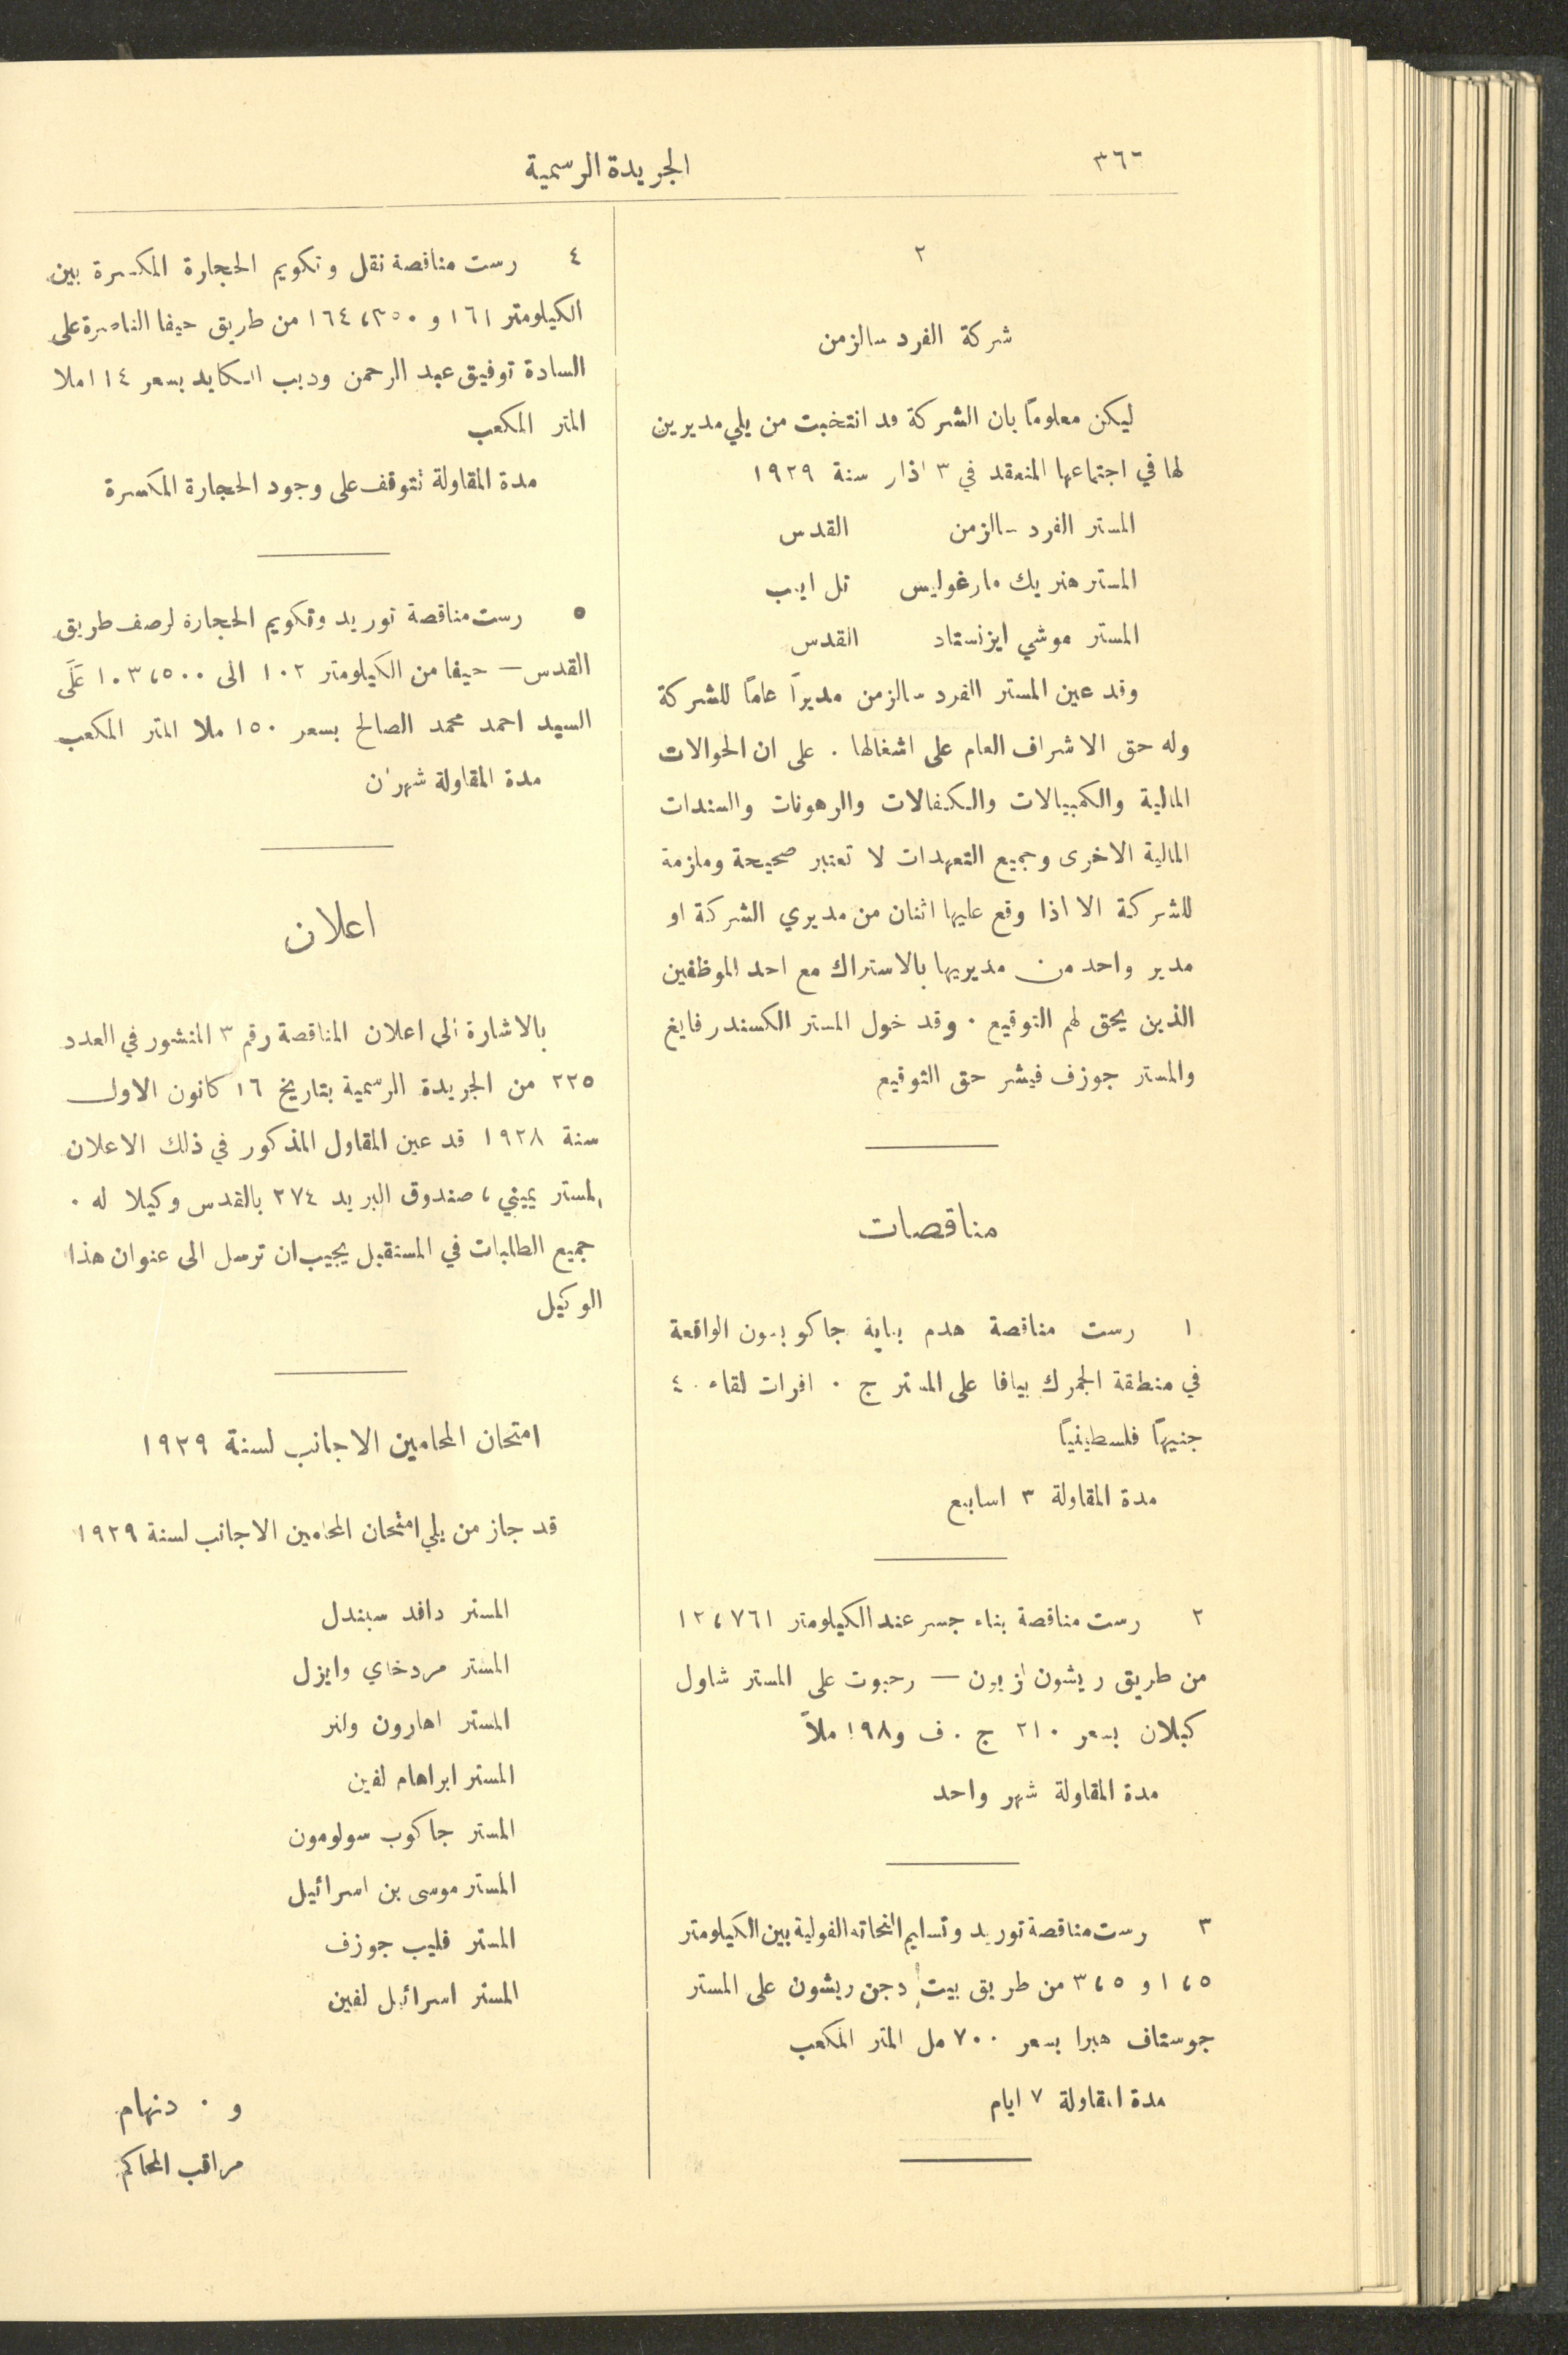 ٣٦٦
الجريدة الرسمية
٢
شركة الفرد سالزمن
ليكن معلوماً بان الشركة قد انتخبت من يلي مديرين
لها في اجتماعها المنعقد في ٣ اذار سنة ١٩٢٩
المستر الفرد سالزمن القدس
المستر هنريك مارغوليس تل ابيب
المستر موشي ايزنستاد القدس
وقد عين المستر الفرد سالزمن مديراً عاماً للشركة
وله حق الاشراف العام على اشغالها . على ان الحوالات
المالية والكمبيالات والكفالات والرهونات والسندات
المالية الاخرى وجميع التعهدات لا تعتبر صحيحة وملزمة
للشركة الا اذا وقع عليها اثنان من مديري الشركة او
مدير واحد من مديريها بالاستراك مع احد الموظفين
الذين يحق لهم التوقيع . وقد خول المستر الكسندر فايغ
والمستر جوزف فيشر حق التوقيع
مناقصات
١ رست مناقصة هدم بناية جاكوبسون الواقعة
في منطقة الجمرك بيافا على المستر ج . افرات لقاء ٤٠
جنيهاً فلسطينياً
مدة المقاولة ٣ اسابيع
٢ رست مناقصة بناء جسر عند الكيلومتر ١٢،٧٦١
من طريق ريشون لزيون — رحبوت على المستر شاول
كبلان بسعر ٢١٠ ج . ف و١٩٨ ملاً
مدة المقاولة شهر واحد
٣ رست مناقصة توريد وتسليم النحاته الفولية بين الكيلومتر
١،٥ و ٣،٥ من طريق بيت دجن ريشون على المستر
جوستاف هبرا بسعر ٧٠٠ مل المتر المكعب
مدة المقاولة ٧ ايام
٤ رست مناقصة نقل وتكويم الحجارة المكسرة بين
الكيلومتر ١٦١ و ١٦٤،٣٥٠ من طريق حيفا الناصرة على
السادة توفيق عبد الرحمن وديب الكايد بسعر ١١٤ ملا
المتر المكعب
مدة المقاولة تتوقف على وجود الحجارة المكسرة
٥ رست مناقصة توريد وتكويم الحجارة لرصف طريق
القدس — حيفا من الكيلومتر ١٠٢ الى ١٠٣،٥٠٠ على
السيد احمد محمد الصالح بسعر ١٥٠ ملا المتر المكعب
مدة المقاولة شهران
اعلان
بالاشارة الي اعلان المناقصة رقم ٣ المنشور في العدد
٢٢٥ من الجريدة الرسمية بتاريخ ١٦ كانون الاول
سنة ١٩٢٨ قد عين المقاول المذكور في ذلك الاعلان
المستر يميني، صندوق البريد ٢٧٤ بالقدس وكيلا له .
جميع الطلبات في المستقبل يجيب ان ترسل الى عنوان هذا
الوكيل
امتحان المحامين الاجانب لسنة ١٩٢٩
قد جاز من يلي امتحان المحامين الاجانب لسنة ١٩٢٩
المستر دافد سبندل
المستر مردخاي وايزل
المستر اهارون ولنر
المستر ابراهام لفين
المستر جاكوب سولومون
المستر موسى بن اسرائيل
المستر فليب جوزف
المستر اسرائيل لفين
و . دنهام
مراقب المحاكم